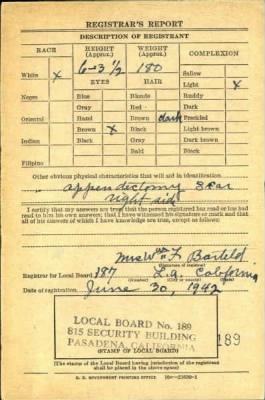 REGISTRAR'S REPORT
DESCRIPTION OF REGISTRANT
RACE HEIGHT (Approx.) WEIGHT (Approx.) COMPLEXION
6-3 1/2 180 Sallow
White x EYES HAIR Light x
Negro Blue Blonde Ruddy
Gray Red Dark
Oriental Hazel Brown dark Freckled
Brown x Black Light brown
Indian Black Gray Dark brown
Bald Black
Filipino
Other obvious physical characteristics that will aid in identification
appendectomy scar
right side
I certify that my answers are true; that the person registered has read or has had
read to him his own answers; that I have witnessed his signature or mark and that
all of his answers of which I have knowledge are true, except as follows:
Mrs Wm F.
(Signature of registrar)
Registrar for Local Board 187 L.A. California
(Number) (City or county) (State)
Date of registration June 30, 1942
LOCAL BOARD No. 189
815 SECURITY BUILDING
PASADENA, CALIFORNIA
189
(STAMP OF LOCAL BOARD)
(The stamp of the Local Board having jurisdiction of the registrant
shall be placed in the above space)
U. S. GOVERNMENT PRINTING OFFICE